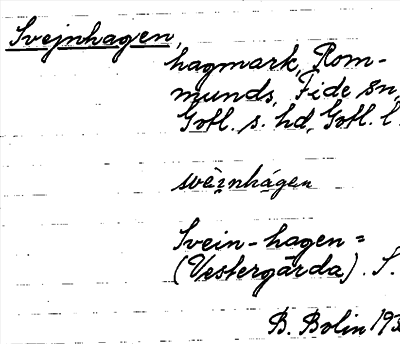 Svejnhagen,
hagmark, Rom-
munds, Fide sn,
Gotl. s. hd, Gotl. l
svèi̯nhágen
Svein-hagen =
(Vestergårda). S.
B. Bolin 193